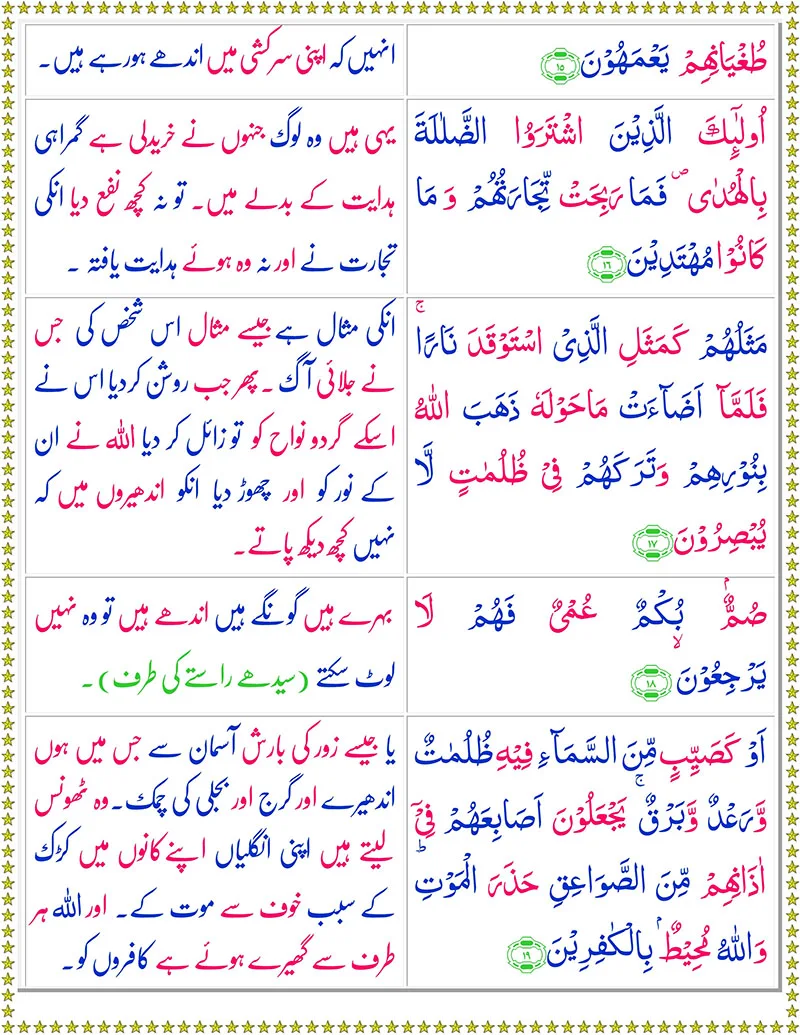 طُغْيَانِهِمْ يَعْمَهُوْنَ ١٥
انہیں کہ اپنی سرکشی میں اندھے ہورہے ہیں۔
اُولٰٓئِكَ الَّذِيْنَ اشْتَرَوُا الضَّلٰلَةَ
بِالْهُدٰى ۖ فَمَا رَبِحَتْ تِّجَارَتُهُمْ وَ مَا
كَانُوْا مُهْتَدِيْنَ ١٦
یہی ہیں وہ لوگ جنہوں نے خریدلی ہے گمراہی
ہدایت کے بدلے میں۔ تو نہ کچھ نفع دیا انکی
تجارت نے اور نہ وہ ہوئے ہدایت یافتہ ۔
مَثَلُهُمْ كَمَثَلِ الَّذِى اسْتَوْقَدَ نَارًا ۚ
فَلَمَّآ اَضَآءَتْ مَا حَوْلَهٗ ذَهَبَ اللّٰهُ
بِنُوْرِهِمْ وَتَرَكَهُمْ فِىْ ظُلُمٰتٍ لَّا
يُبْصِرُوْنَ ١٧
انکی مثال ہے جیسے مثال اس شخص کی جس
نے جلائی آگ ۔ پھر جب روشن کردیا اس نے
اسکے گردو نواح کو تو زائل کر دیا اللہ نے ان
کے نور کو اور چھوڑ دیا انکو اندھیروں میں کہ
نہیں کچھ دیکھ پاتے۔
صُمٌّۢ بُكْمٌ عُمْىٌ فَهُمْ لَا
يَرْجِعُوْنَ ۙ ١٨
بہرے ہیں گونگے ہیں اندھے ہیں تو وہ نہیں
لوٹ سکتے (سیدھے راستے کی طرف) ۔
اَوْ كَصَيِّبٍ مِّنَ السَّمَآءِ فِيْهِ ظُلُمٰتٌ
وَّرَعْدٌ وَّبَرْقٌ ۚ يَجْعَلُوْنَ اَصَابِعَهُمْ فِىْٓ
اٰذَانِهِمْ مِّنَ الصَّوَاعِقِ حَذَرَ الْمَوْتِ ؕ
وَاللّٰهُ مُحِيْطٌۢ بِالْكٰفِرِيْنَ ١٩
یا جیسے زور کی بارش آسمان سے جس میں ہوں
اندھیرے اور گرج اور بجلی کی چمک۔ وہ ٹھونس
لیتے ہیں اپنی انگلیاں اپنے کانوں میں کڑک
کے سبب خوف سے موت کے۔ اور اللہ ہر
طرف سے گھیرے ہوئے ہے کافروں کو۔